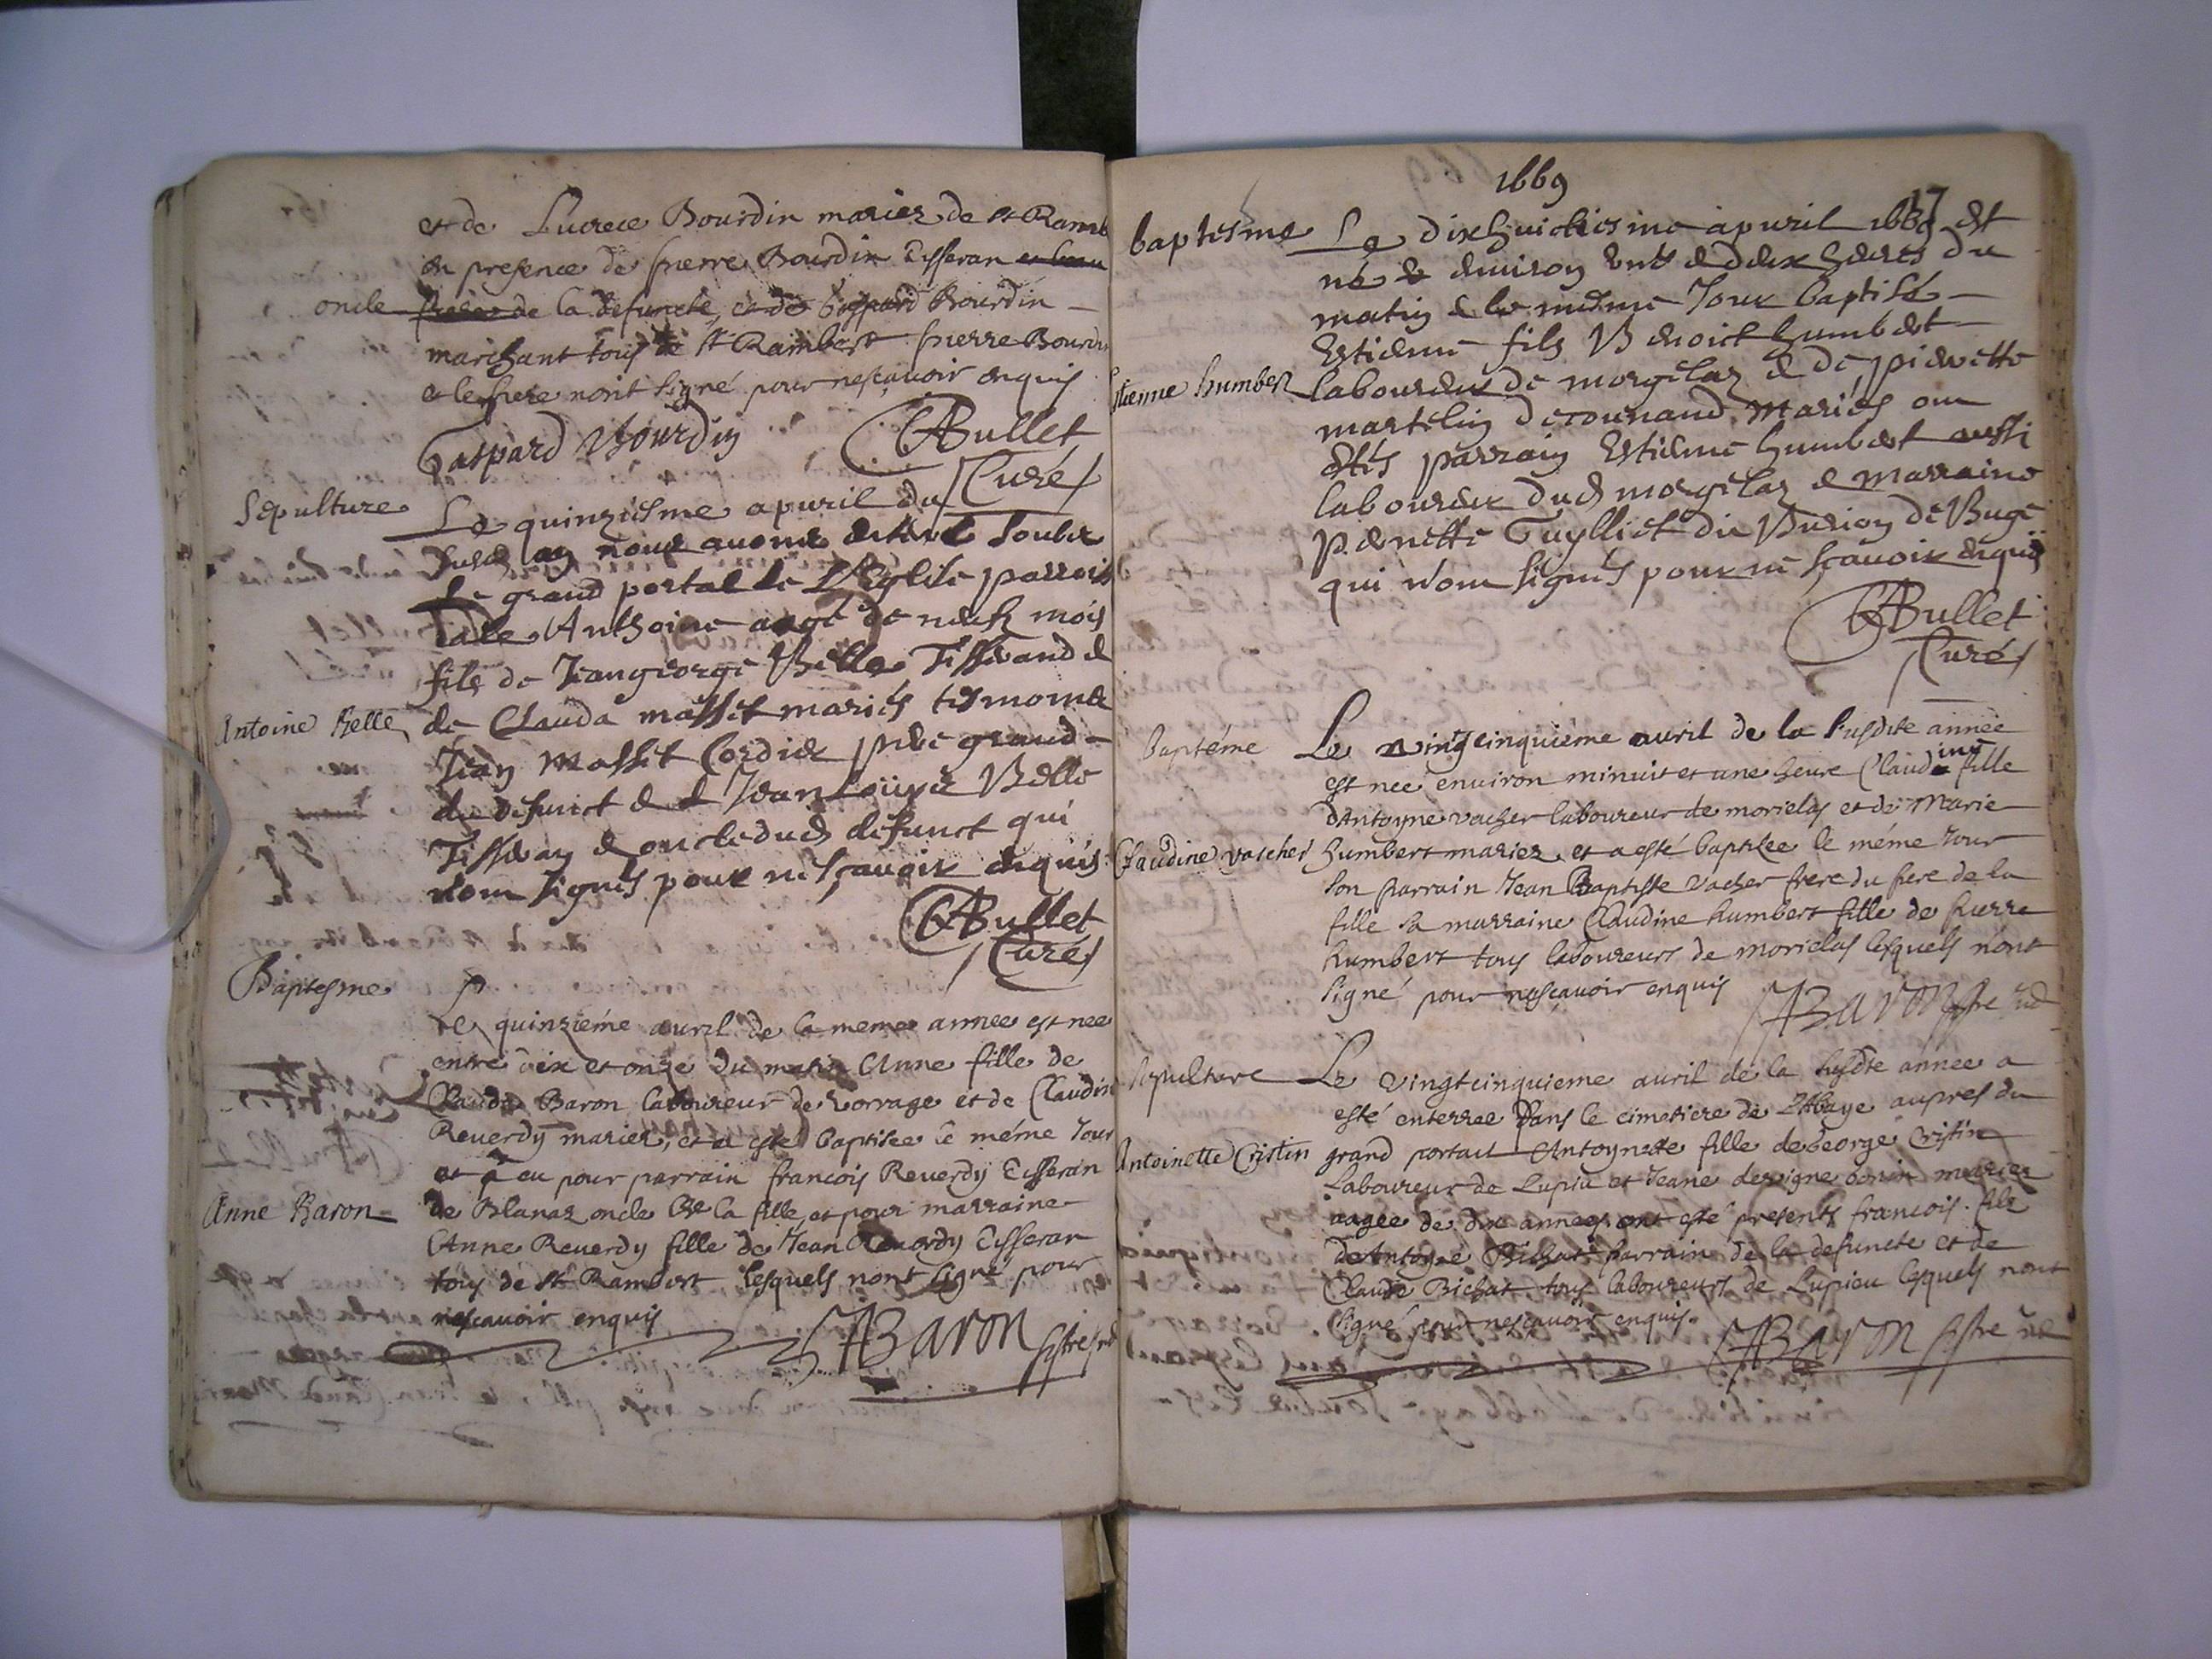 et de Lucrece Bourdin mariez de st Ramb
en presence de pierre Bourdin Tisseran et beau
oncle frere de la defuncte, et de Gaspard Bourdin
marchant tous de st Rambert pierre Bourdin
et le pere n'ont signé pour ne sçavoir enquis
Gaspard Bourdin
CABullet
Curé
Sepulture
Le quinziesme apvril du
susd an nous avons enterré soubz
le grand portal de L'Eglise parrois
ciale Anthoine aagé de neuf mois
fils de Jeangeorge Belle Tisserand &
Antoine Belle
de Clauda masset mariés tesmoins
Jean Masset Cordier pere grand
du defunct & d Jean Louys Belle
Tisseran & oncle dud defunct qui
n'ont signés pour ne sçavoir enquis
CABullet
Curé
Baptesme
Le quinziéme avril de la meme annee est nee
entre dix et onze du matin Anne fille de
Claude Baron laboureur de vorrage et de Claudin
Reverdy mariez, et a esté baptisee le méme Jour
et a eu pour parrain francois Reverdy Tisseran
Anne Baron
de Blanaz oncle de la fille, et pour marraine
Anne Reverdy fille de Jean Reverdy Tisseran
tous de st Rambert lesquels n'ont signé pour
ne scavoir enquis
ABaron
1669
17
baptesme
Le dixhuictiesme apvril 1669 est
né & environ une & deux heures du
matin & le mesme Jour baptisé
Estienne fils Benoict humbert
Estienne humbert
laboureur de morgelaz & de pierrette
martelin de tournand mariés ont
estés parrain Estienne humbert aussi
laboureur dud morgelaz & marraine
pernette Guylliet du Burion de Buge
qui n'ont signés pour ne sçavoir enquis
CABullet
Curé
Baptéme
Le vingtcinquiéme avril de la susdite année
est nee environ minuit et une heure Claudine fille
d'Antoyne vacher laboureur de morielas et de Marie
Claudine vascher
humbert mariez, et a esté baptisee le méme Jour
son parrain Jean Baptiste vacher frere du pere de la
fille sa marraine Claudine humbert fille de pierre
humbert tous laboureurs de morielas lesquels n'ont
signé pour ne sçavoir enquis
ABaron
sepulture
Le vingtcinquieme avril de la susdte annee a
esté enterree dans le cimetiere de l'Abaye aupres du
Antoinette Cristin
grand portail Antoynette fille de George Cristin
Laboureur de Lupieu et Jeane bonin mariez
aagee de dix annees ont esté presents francois fils
de Antoyne Bichat parrain de la defuncte et de
Claude Bichat tous laboureurs de Lupieu lesquels n'ont
signé pour ne sçavoir enquis.
ABaron